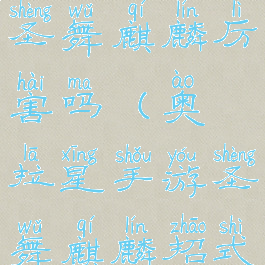 shèng wǔ qí lín lì
圣舞麒麟厉
hài ma ào
害吗（奥
lā xīng shǒu yóu shèng
拉星手游圣
wǔ qí lín zhāo shì
舞麒麟招式